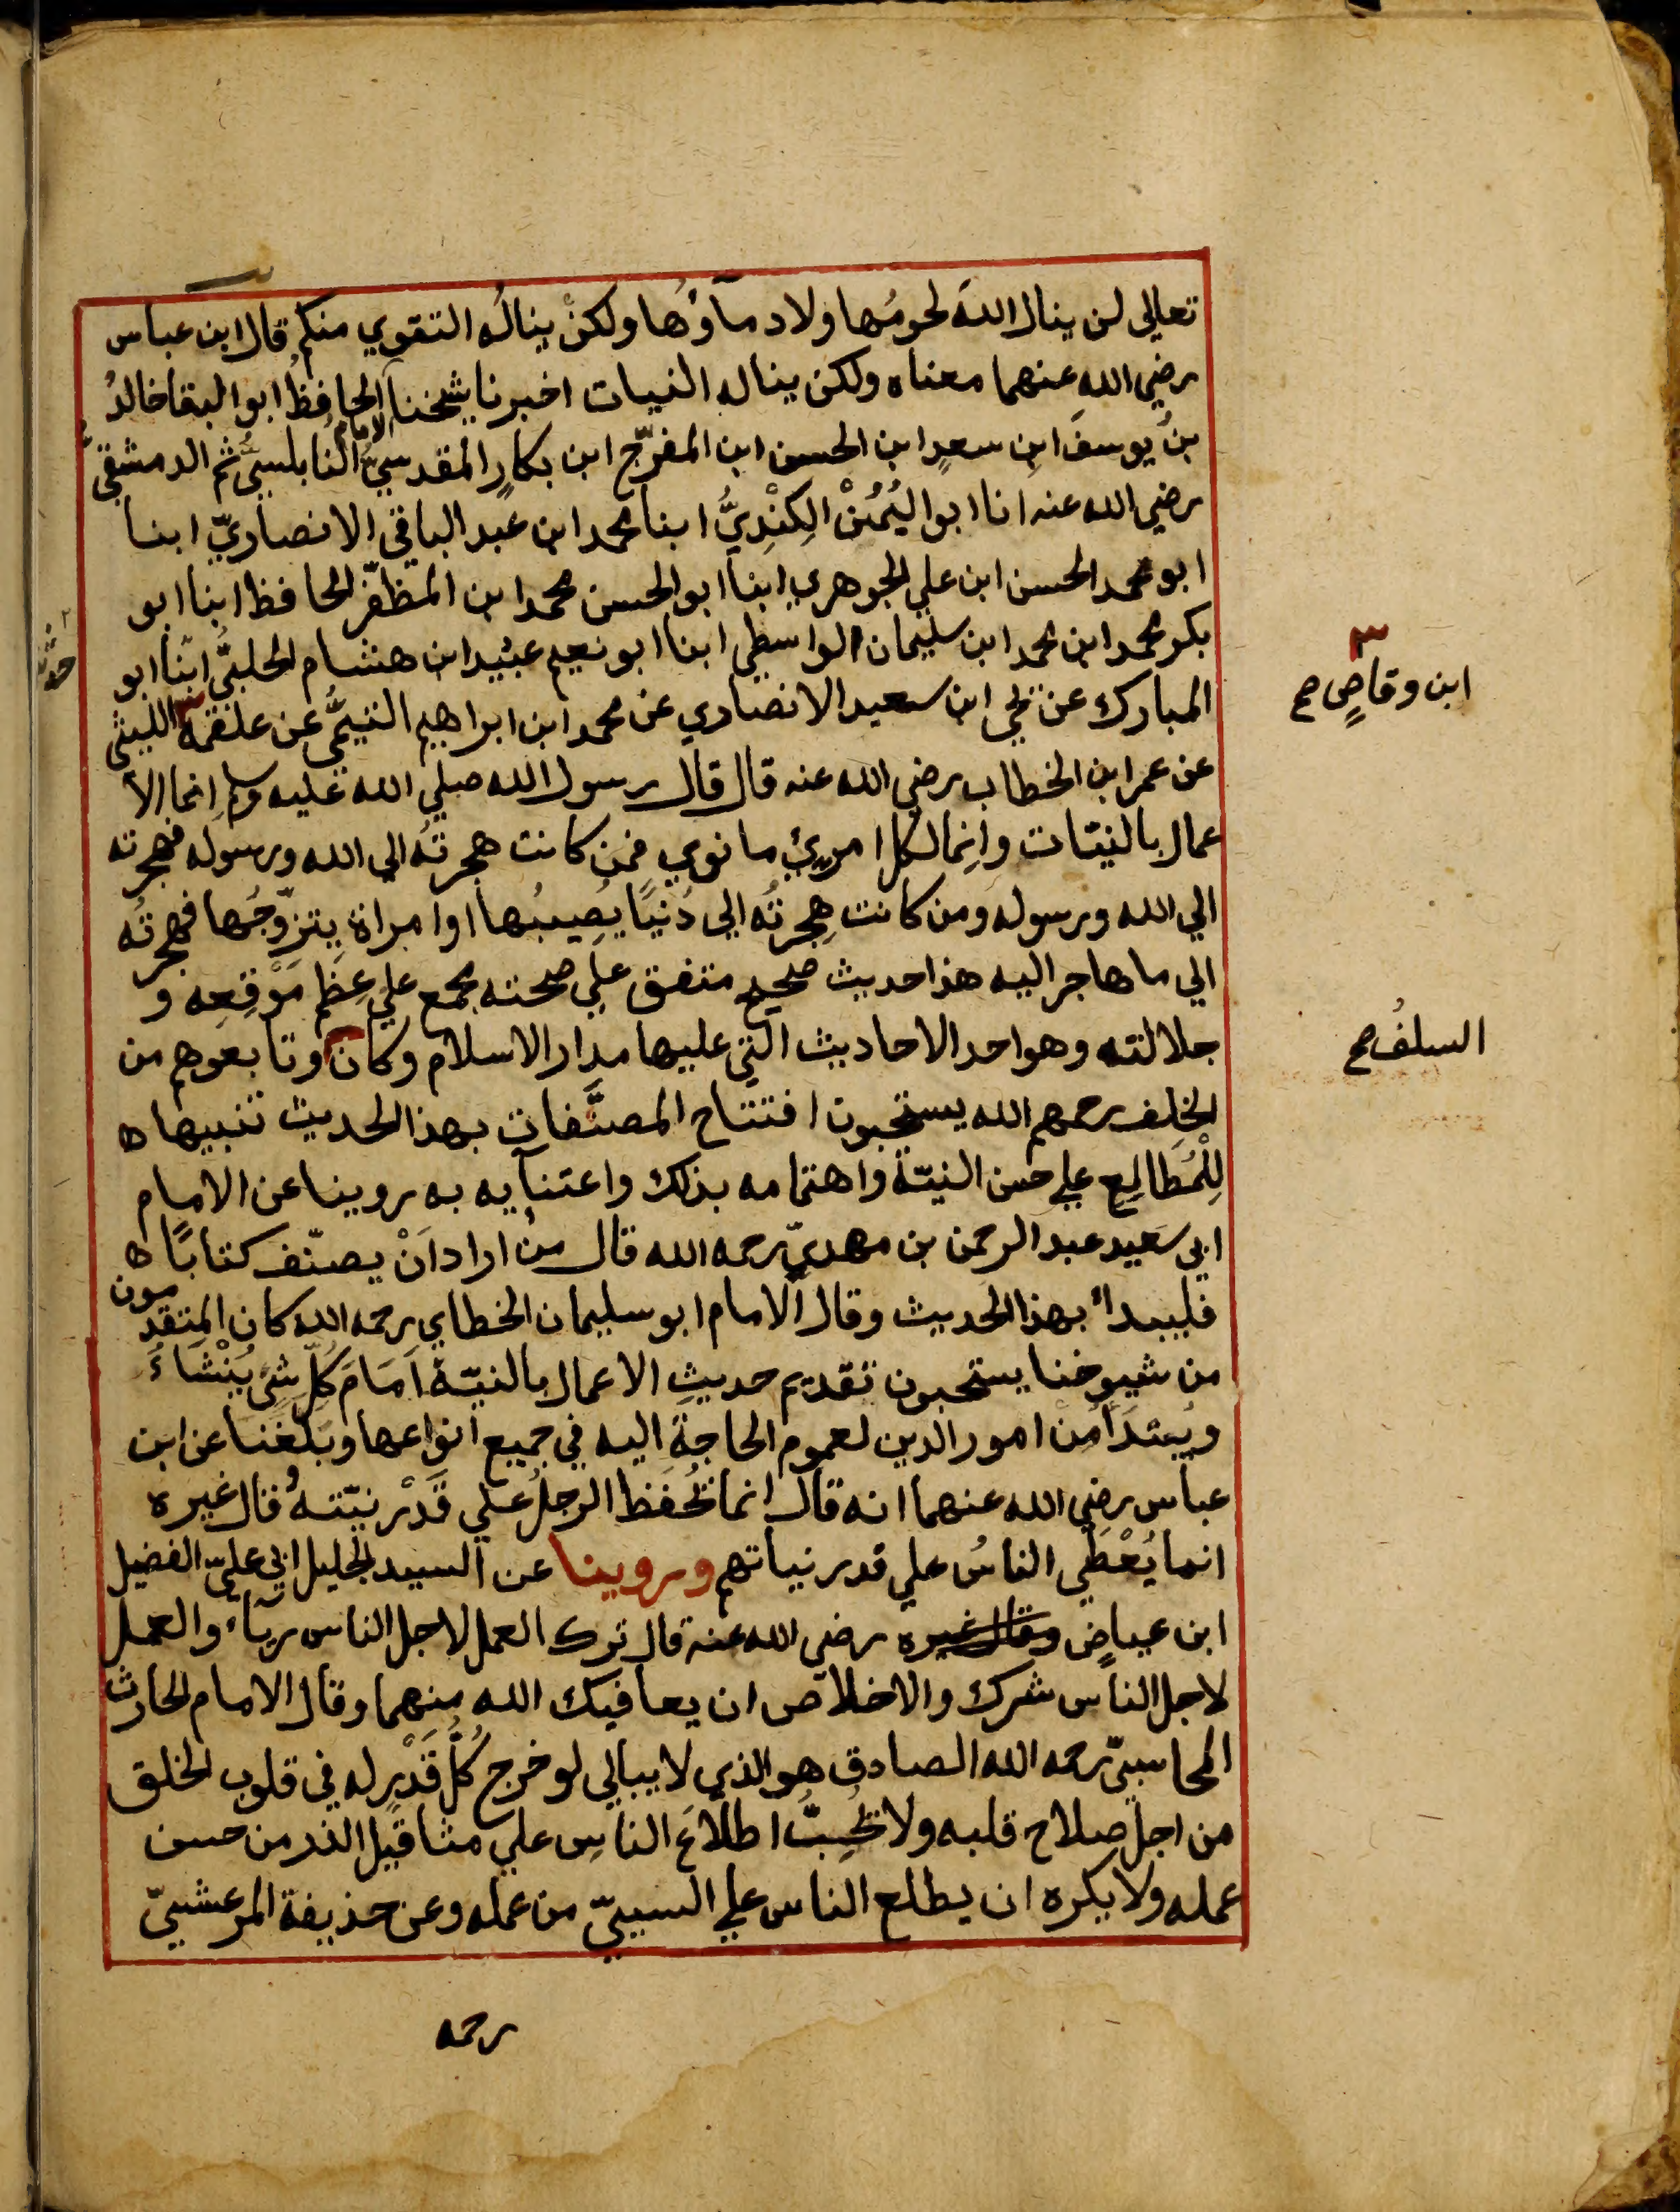 تعالى لن ينال الله لحومُها ولا دمآؤُها ولكنْ ينالُه التقوي منكم قال ابن عباس
رضي الله عنهما معناه ولكن يناله النيات اخبرنا شيخنا الحافظُ ابو البقا خالدُ
الامام
بنُ يوسفَ ابنِ سعدٍ ابن الحسن ابن المفرّج ابن بكارٍ المقدسيُّ النابلسيُّ ثم الدمشقيّ
رضي الله عنه انا ابو اليُمُنْ الكِنْدِيُّ ابنا محمد ابن عبد الباقي الانصاريّ ابنا
ابو محمد الحسن ابن علي الجوهري ابنا ابو الحسن محمد ابن المظفّر الحافظ ابنا ابو
بكر محمد ابن محمد ابن سليمان الواسطي ابنا ابو نعيم عبيد ابن هشام الحلبيُّ ابنا ابو
المبارك عن يحي ابن سعيد الانصاري عن محمد ابن ابراهيم التيميُّ عن علقمة الليثي
ابن وقاصٍ صح
عن عمر ابن الخطاب رضي الله عنه قال قال رسول الله صلي الله عليه وسلم إنما الأ
عمال بالنيّات وإنما لكل امرئٍ ما نوي فمن كانت هجرتُه الي الله ورسوله فهجرته
الي الله ورسوله ومن كانت هِجرتُه الي دُنيًا يُصيبُها او امراة يتزوّجُها فهجرتُه
الي ما هاجر اليه هذا حديث صحيح متفق علي صحته مجمع علي عِظَم مَوْقِعِه و
جلالته وهو احد الاحاديث التي عليها مدار الاسلام وكان وتابعوهم من
السلفُ صح
الخلف رحمهم الله يستحبون افتتاح المصنَّفات بهذا الحديث تنبيها ه
لِلْمُطَالِعِ علي حسن النيّة واهتمامه بذلك واعتنآيه به روينا عن الامام
ابي سَعيد عبد الرحمن بن مهديّ رحمه الله قال منْ اراد اَنْ يصنّف كتابًا ه
فليبدأ بهذا الحديث وقال الامام ابو سليمان الخطابي رحمه الله كان المتقدمون
من شيوخنا يستحبون تقديم حديثِ الاعمال بالنيّة اَمَامَ كُلِّ شئٍ يُنْشَاءُ
ويُبتدَأ منْ امور الدين لعموم الحاجة اليه في جميع انواعها وبَلَغَنَا عن ابن
عباس رضي الله عنهما انه قال انما يُحْفَظ الرجلُ علي قَدْر نيّته وُقال غيره
انما يُعْطَي الناسُ علي قدر نياتهم وروينا عن السيد الجليل ابي عليّ الفضيل
ابن عياضٍ وقال غيره رضي الله عنه قال ترك العمل لاجل الناس ريآء والعمل
لاجل الناس شرك والاخلاص ان يعافيك الله منهما وقال الامام الحارث
المحاسبيّ رحمه الله الصادق هو الذي لا يبالي لو خرج كُلّ قَدْرٍ له في قلوب الخلق
من اجل صلاح قلبه ولا يُحِبُّ اطلاعَ الناسِ علي مثاقيل الذر من حسن
عمله ولا يكره ان يطلع الناس علي السييّ من عمله وعن حذيفة المرعشيّ
رحمه